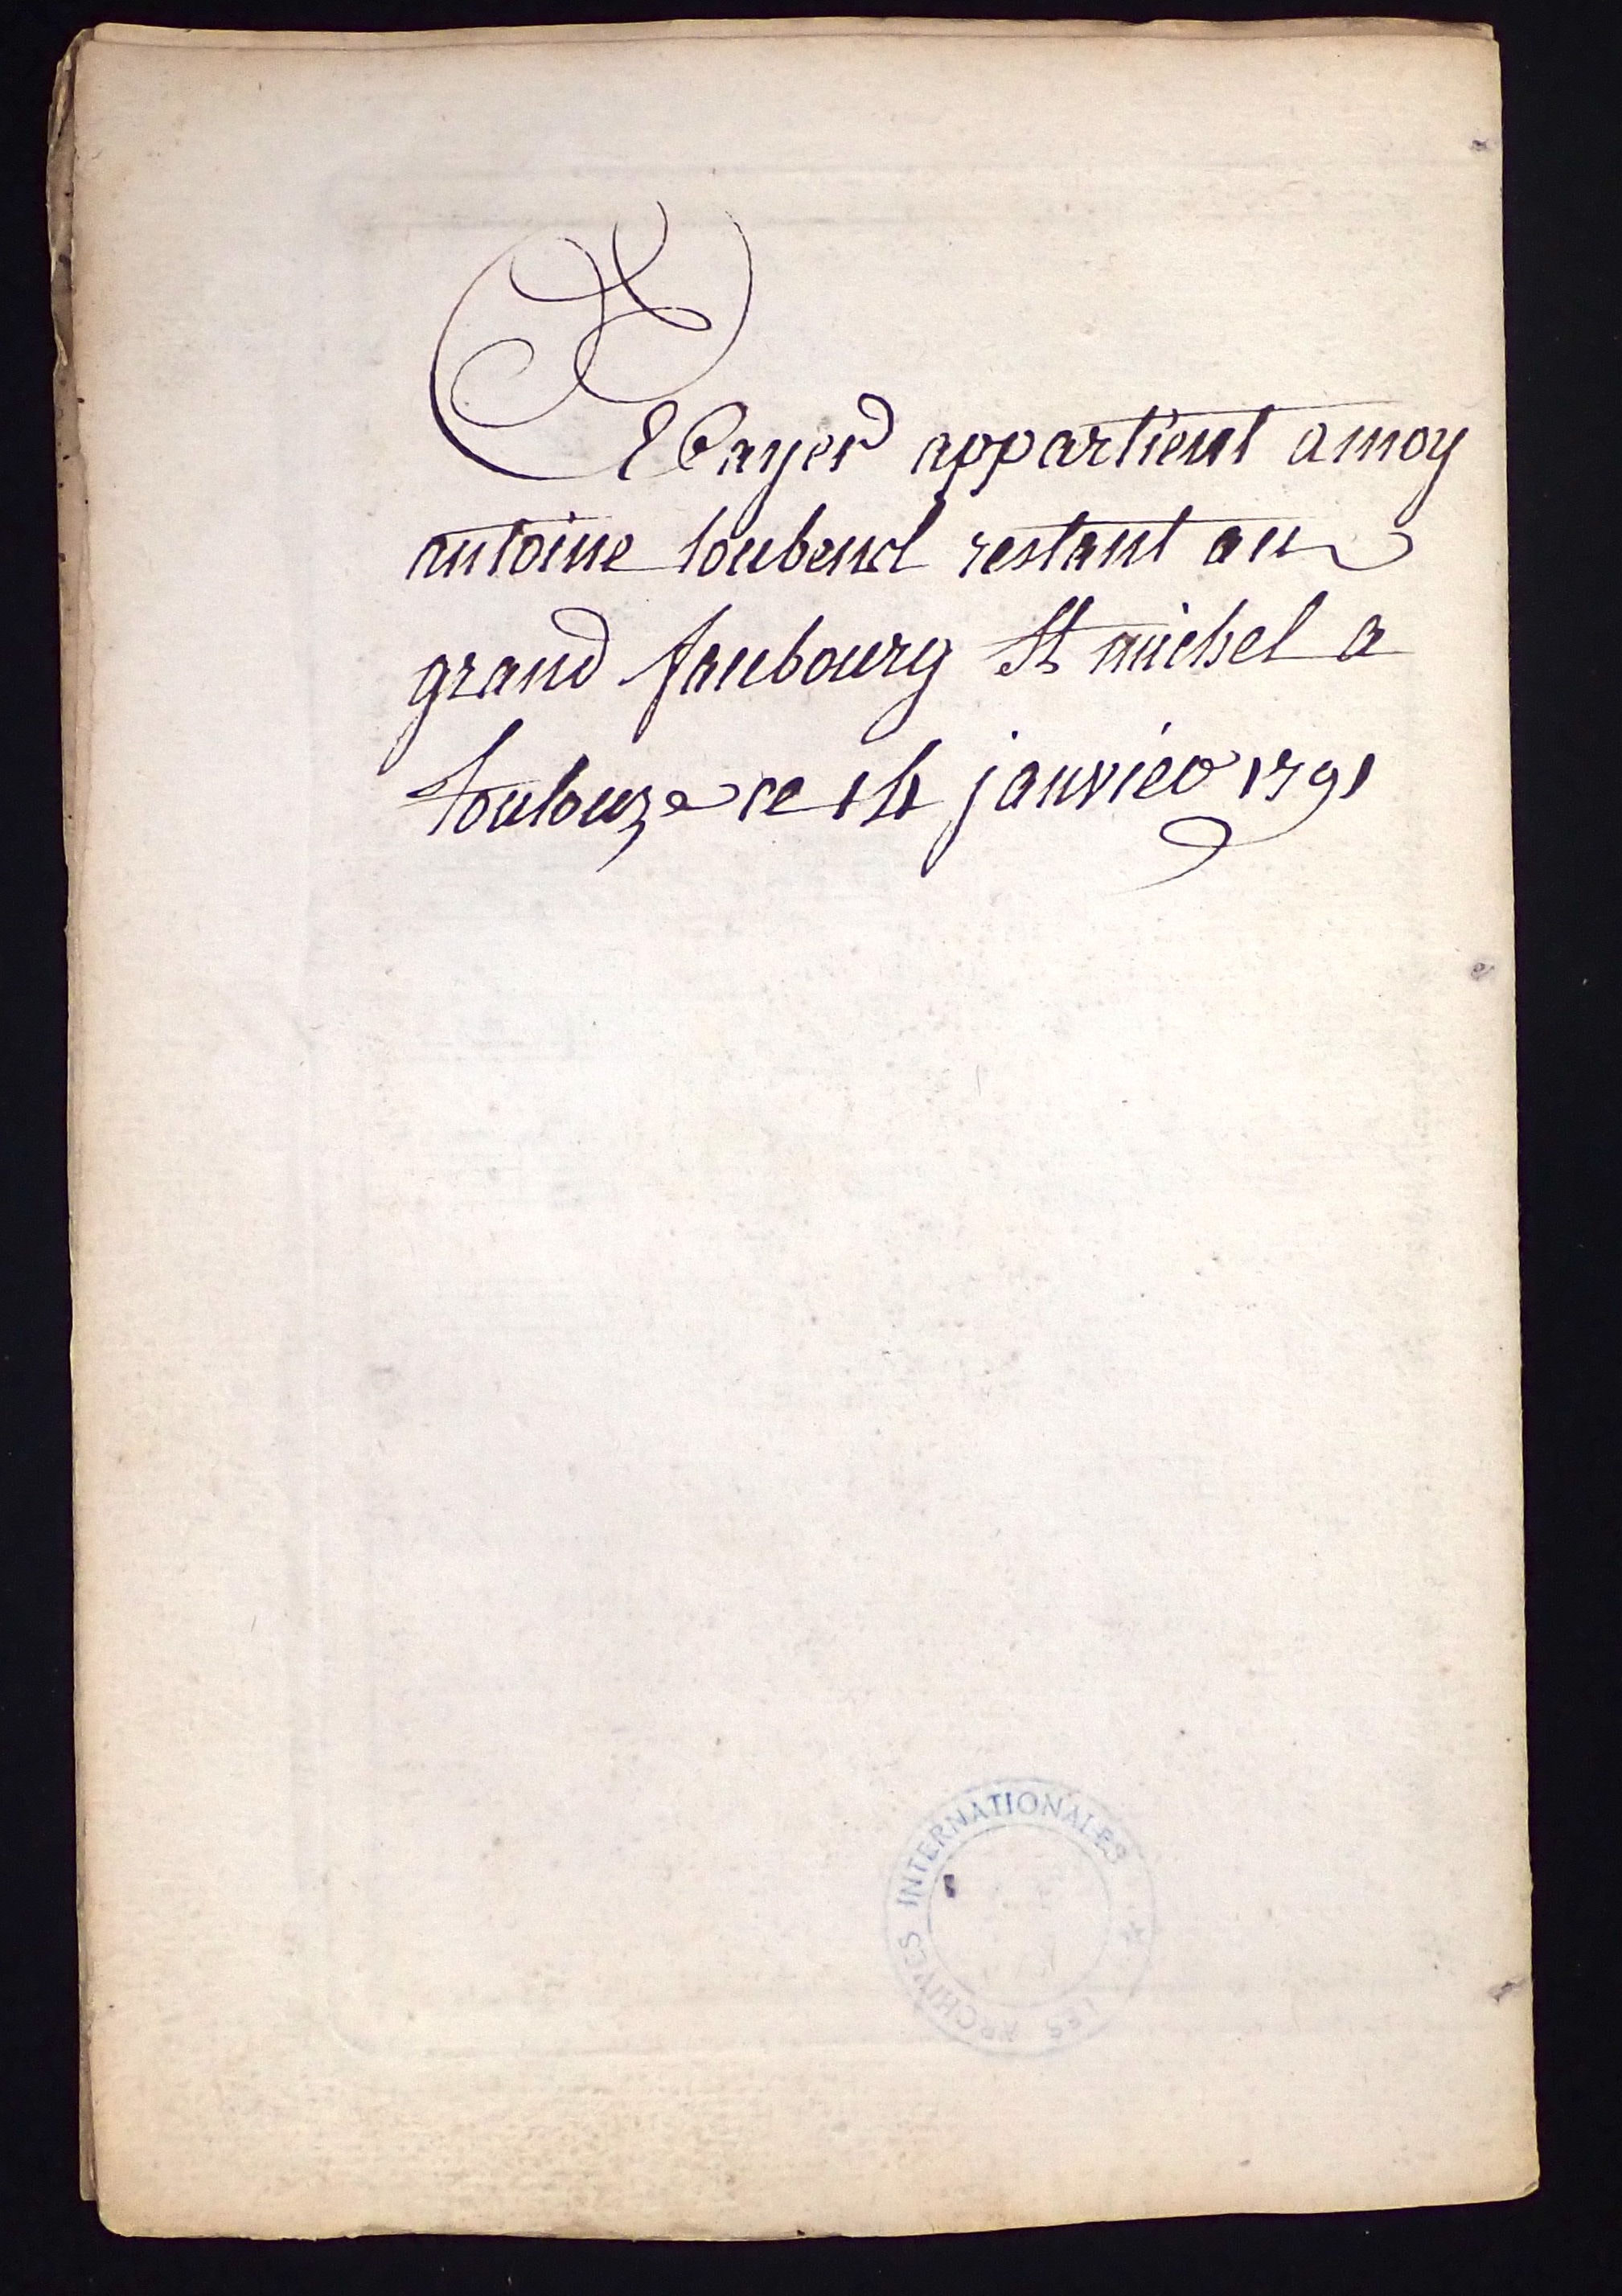 Ce Cayer appartient a moy
antoine loubend restant au
grand faubourg St michel a
toulouze ce 14 janvier 1791
LES ARCHIVES INTERNATIONALES